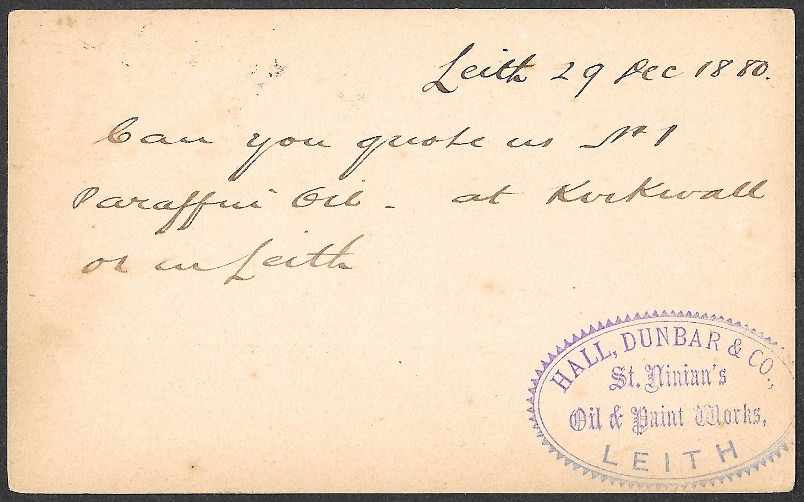 Leith 29 Dec 1880.
Can you quote us No 1
Paraffin Oil - at Kirkwall
or in Leith
HALL, DUNBAR & CO.,
St. Ninian's
Oil & Paint Works,
LEITH